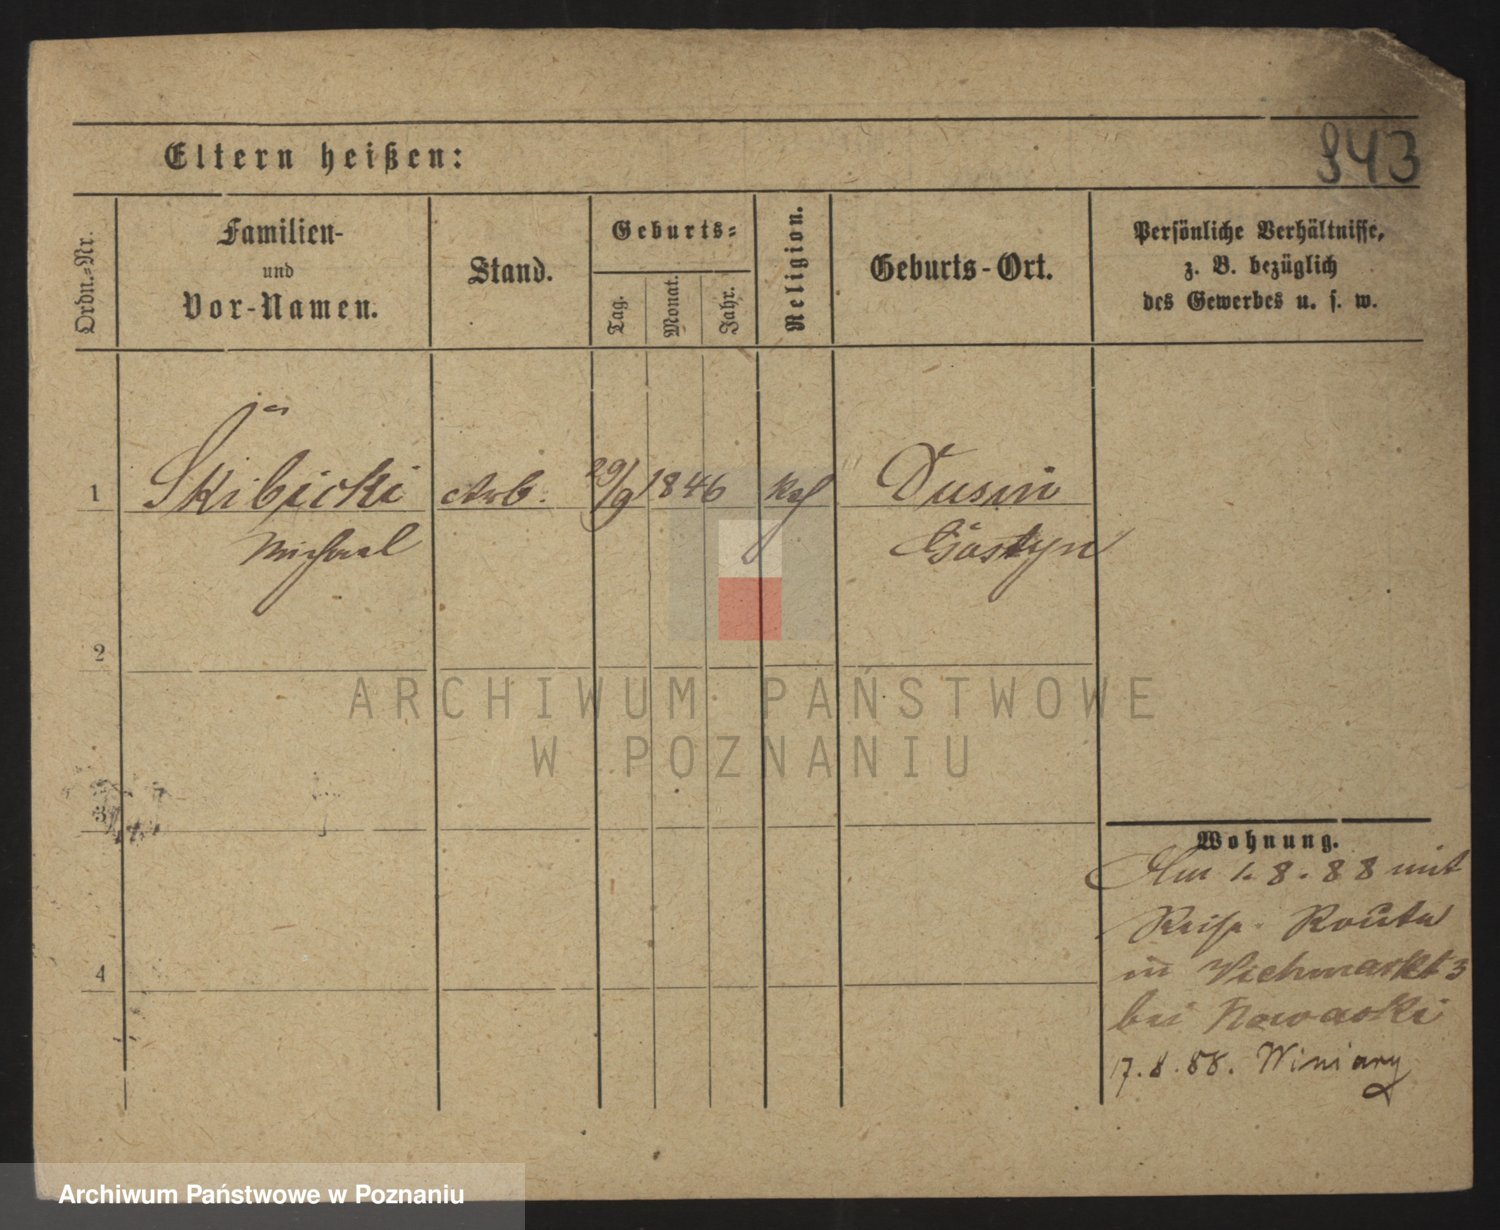 943
Eltern heißen:
Ordn.=Nr.
Familien-
und
Vor-Namen.
Stand.
Geburts=
Tag.
Monat.
Jahr.
Religion.
Geburts-Ort.
Persönliche Verhältnisse,
z. B. bezüglich
des Gewerbes u. s. w.
1 Skibicki Arb. 29/9 1846 kaf Dusin
Michael Gostyn
2
ARCHIWUM PAŃSTWOWE
W POZNANIU
3
Wohnung.
Am 1.8.88 mit
Reise Route
in Viehmarkt 3
bei Nowacki
4
17.8.88. Winiary
Archiwum Państwowe w Poznaniu